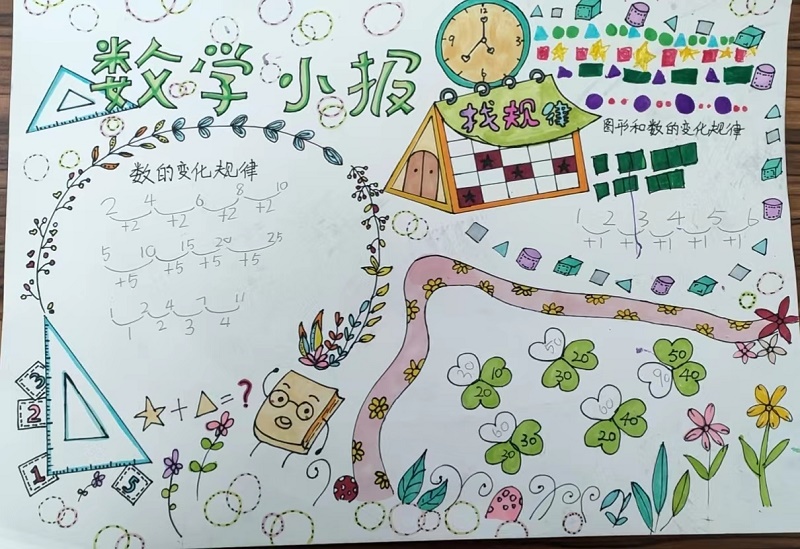 数学小报
12
3
6
9
找规律
图形和数的变化规律
数的变化规律
2 4 6 8 10
+2 +2 +2 +2
5 10 15 20 25
+5 +5 +5 +5
1 2 4 7 11
1 2 3 4
1 2 3 4 5 6
+1 +1 +1 +1 +1
3
2
1
5
+ = ?
30 10 20
50 20 30
50 90 40
60 30 30
60 40 20